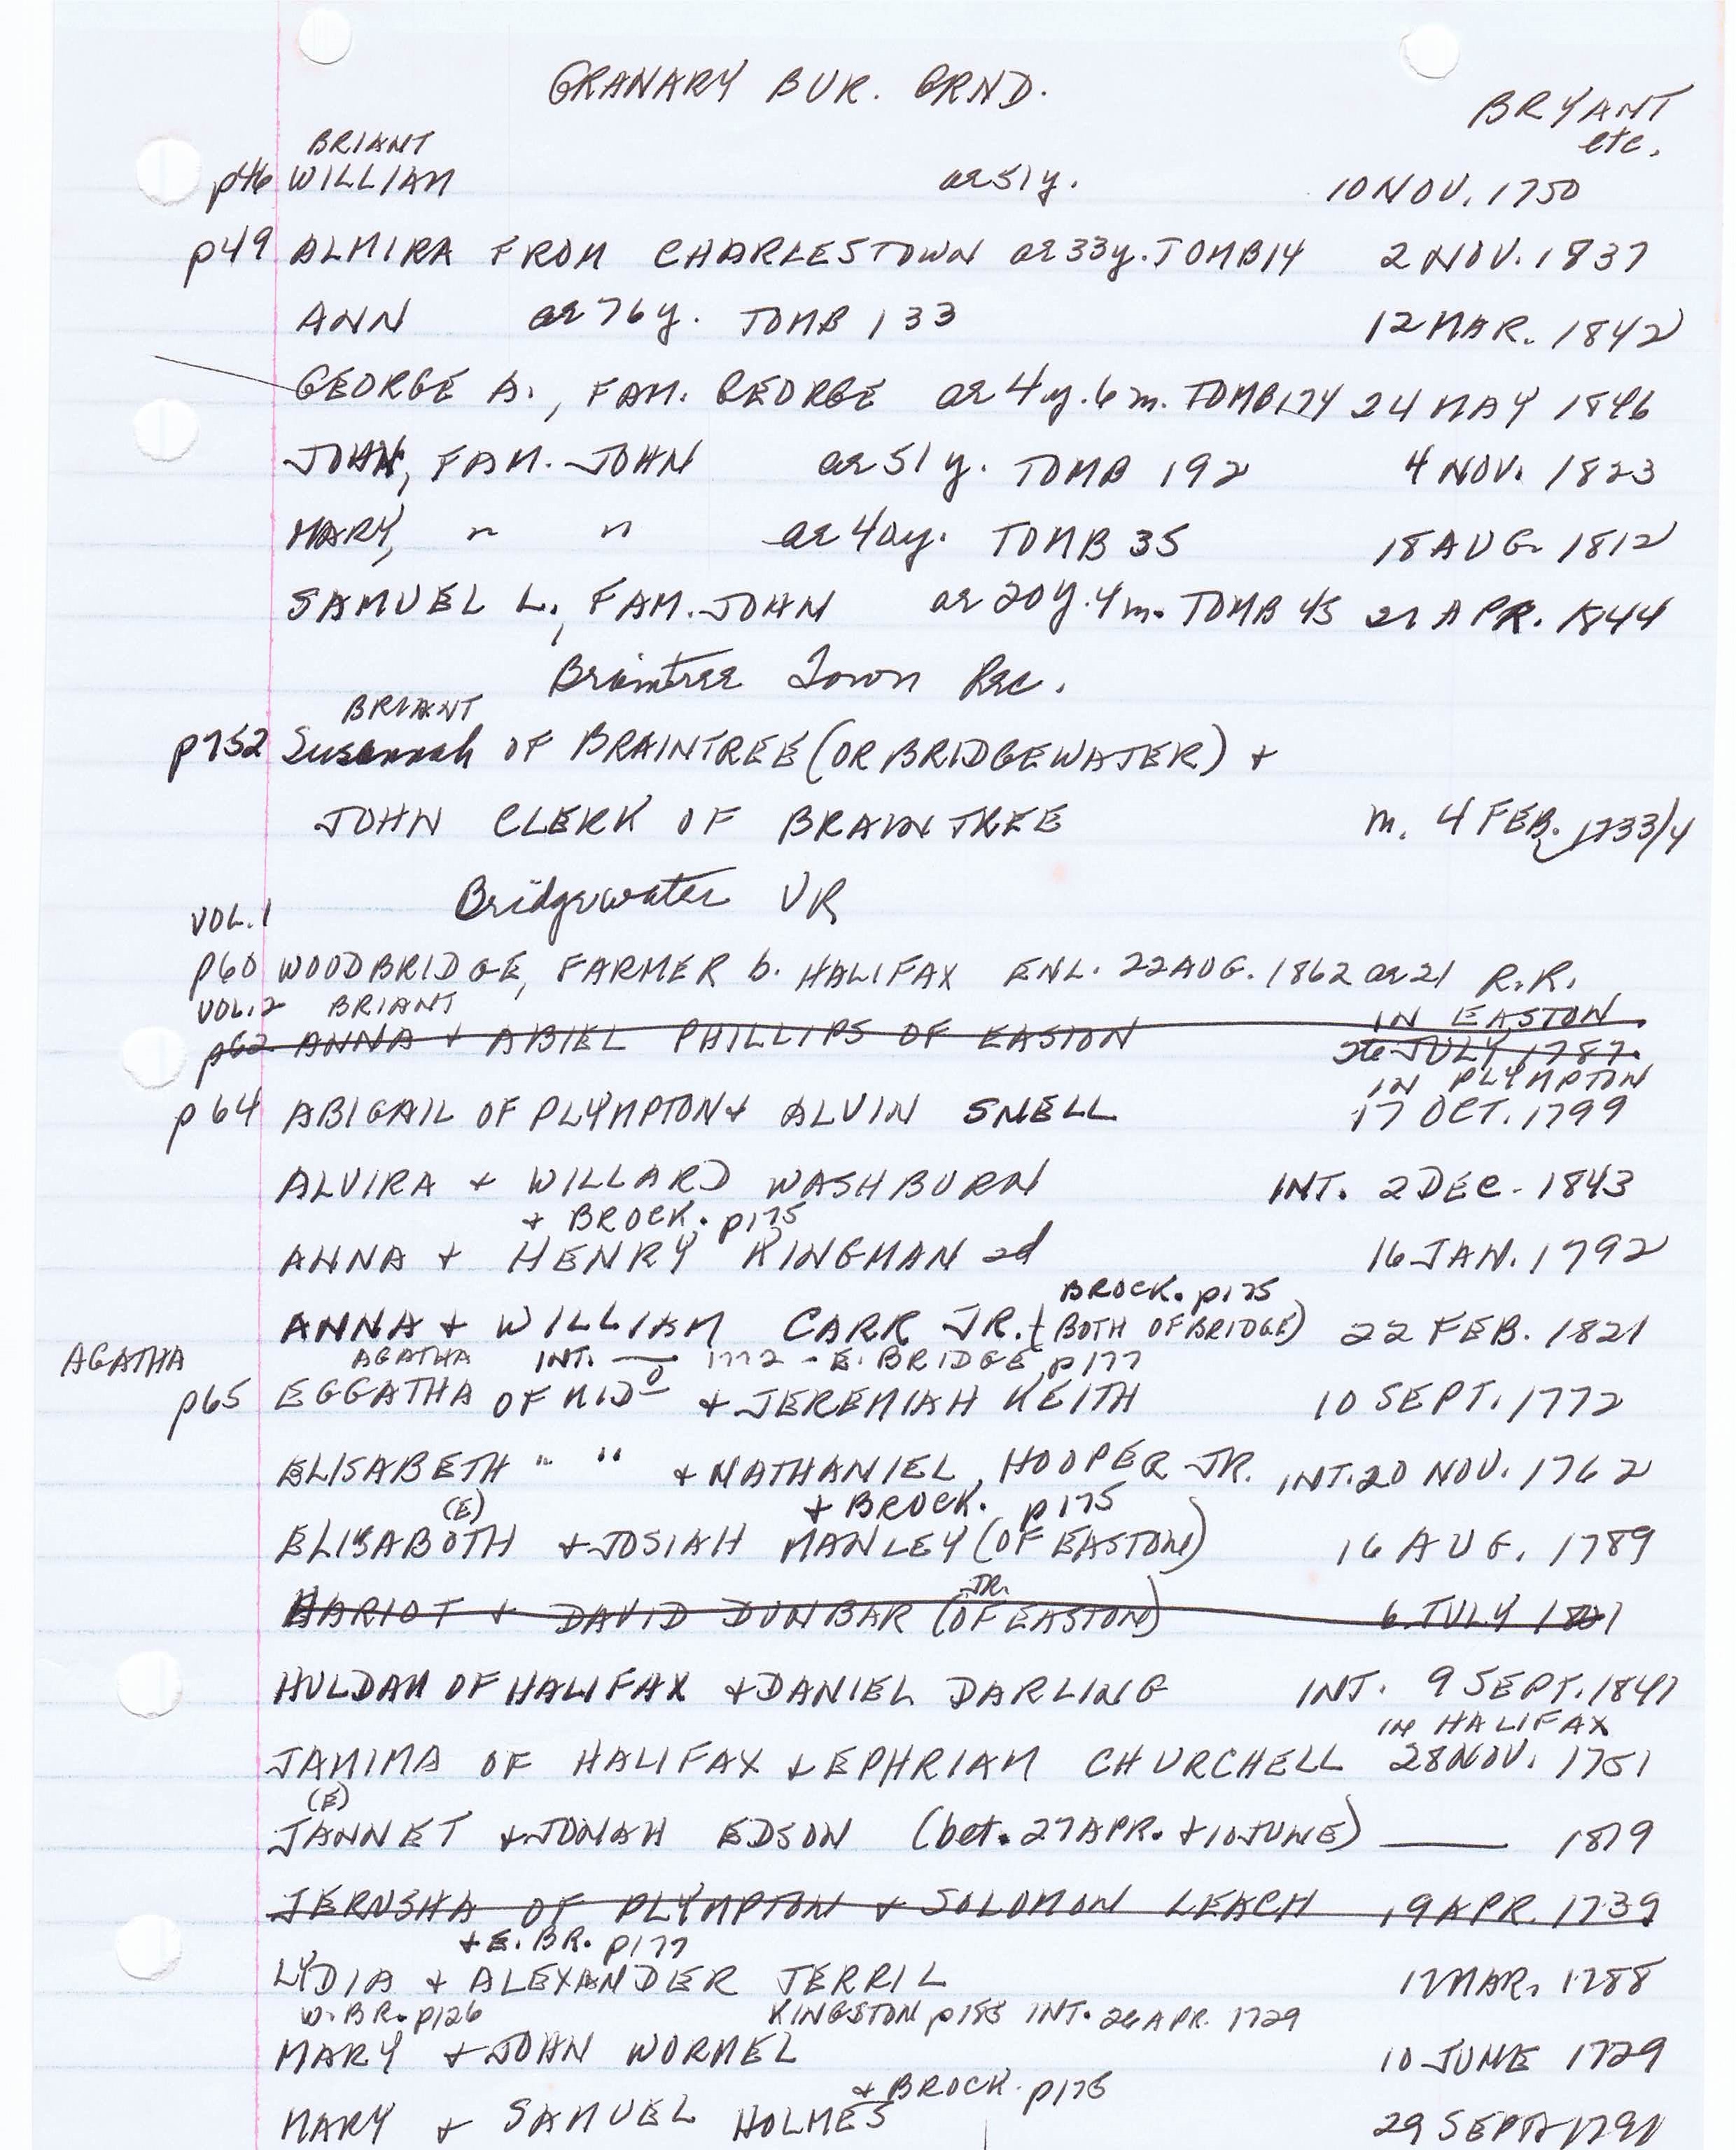 GRANARY BUR. GRND.
BRYANT
etc.
BRIANT
p46 WILLIAM ae 51y. 10 NOV. 1750
p49 ALMIRA FROM CHARLESTOWN ae 33y. TOMB 14 2 NOV. 1837
ANN ae 76y. TOMB 133 12 MAR. 1842
GEORGE A., FAM. GEORGE ae 4y. 6m. TOMB 174 24 MAY 1846
JOHN, FAM. JOHN ae 51y. TOMB 192 4 NOV. 1823
MARY, " " ae 40y. TOMB 35 18 AUG. 1812
SAMUEL L., FAM. JOHN ae 20y. 4m. TOMB 45 APR. 1844
Braintree Town Rec.
BRIANT
p752 Susannah OF BRAINTREE (OR BRIDGEWATER) +
JOHN CLERK OF BRAINTREE m. 4 FEB. 1733/4
Bridgewater VR
VOL. 1
p60 WOODBRIDGE, FARMER b. HALIFAX ENL. 22 AUG. 1862 ae 21 R.R.
VOL. 2 BRIANT IN EASTON
p62 ANNA + ABIEL PHILLIPS OF EASTON 26 JULY, 1787.
IN PLYMPTON
p64 ABIGAIL OF PLYMPTON + ALVIN SNELL 17 OCT. 1799
ALVIRA + WILLARD WASHBURN INT. 2 DEC. 1843
+ BROCK. p175
ANNA + HENRY KINGMAN 2d 16 JAN. 1792
BROCK. p175
ANNA + WILLIAM CARR JR. + (BOTH OF BRIDGE) 22 FEB. 1821
AGATHA AGATHA INT. — 1772 - E. BRIDGE p177
p65 EGGATHA OF MIDo + JEREMIAH KEITH 10 SEPT. 1772
ELISABETH " " + NATHANIEL HOOPER JR. INT. 20 NOV. 1762
(E) + BROCK. p175
ELISABOTH + JOSIAH MANLEY (OF EASTON) 16 AUG. 1789
JR.
HARIOT + DAVID DUNBAR (OF EASTON) 6 JULY
HULDAH OF HALIFAX + DANIEL DARLING INT. 9 SEPT. 1841
IN HALIFAX
JAMIMA OF HALIFAX + EPHRIAM CHURCHELL 28 NOV. 1751
(E)
JANNET + JONAH EDSON (bet. 27 APR. + 10 JUNE) — 1819
JERNSHA OF PLYMPTON + SOLOMON LEACH 19 APR. 1739
+ E. BR. p177
LYDIA + ALEXANDER TERRIL 17 MAR. 1788
W. BR. p126 KINGSTON INT. 26 APR. 1729
MARY + JOHN WORMEL 10 JUNE 1729
+ BROCK. p175
MARY + SAMUEL HOLMES 29 SEPT.